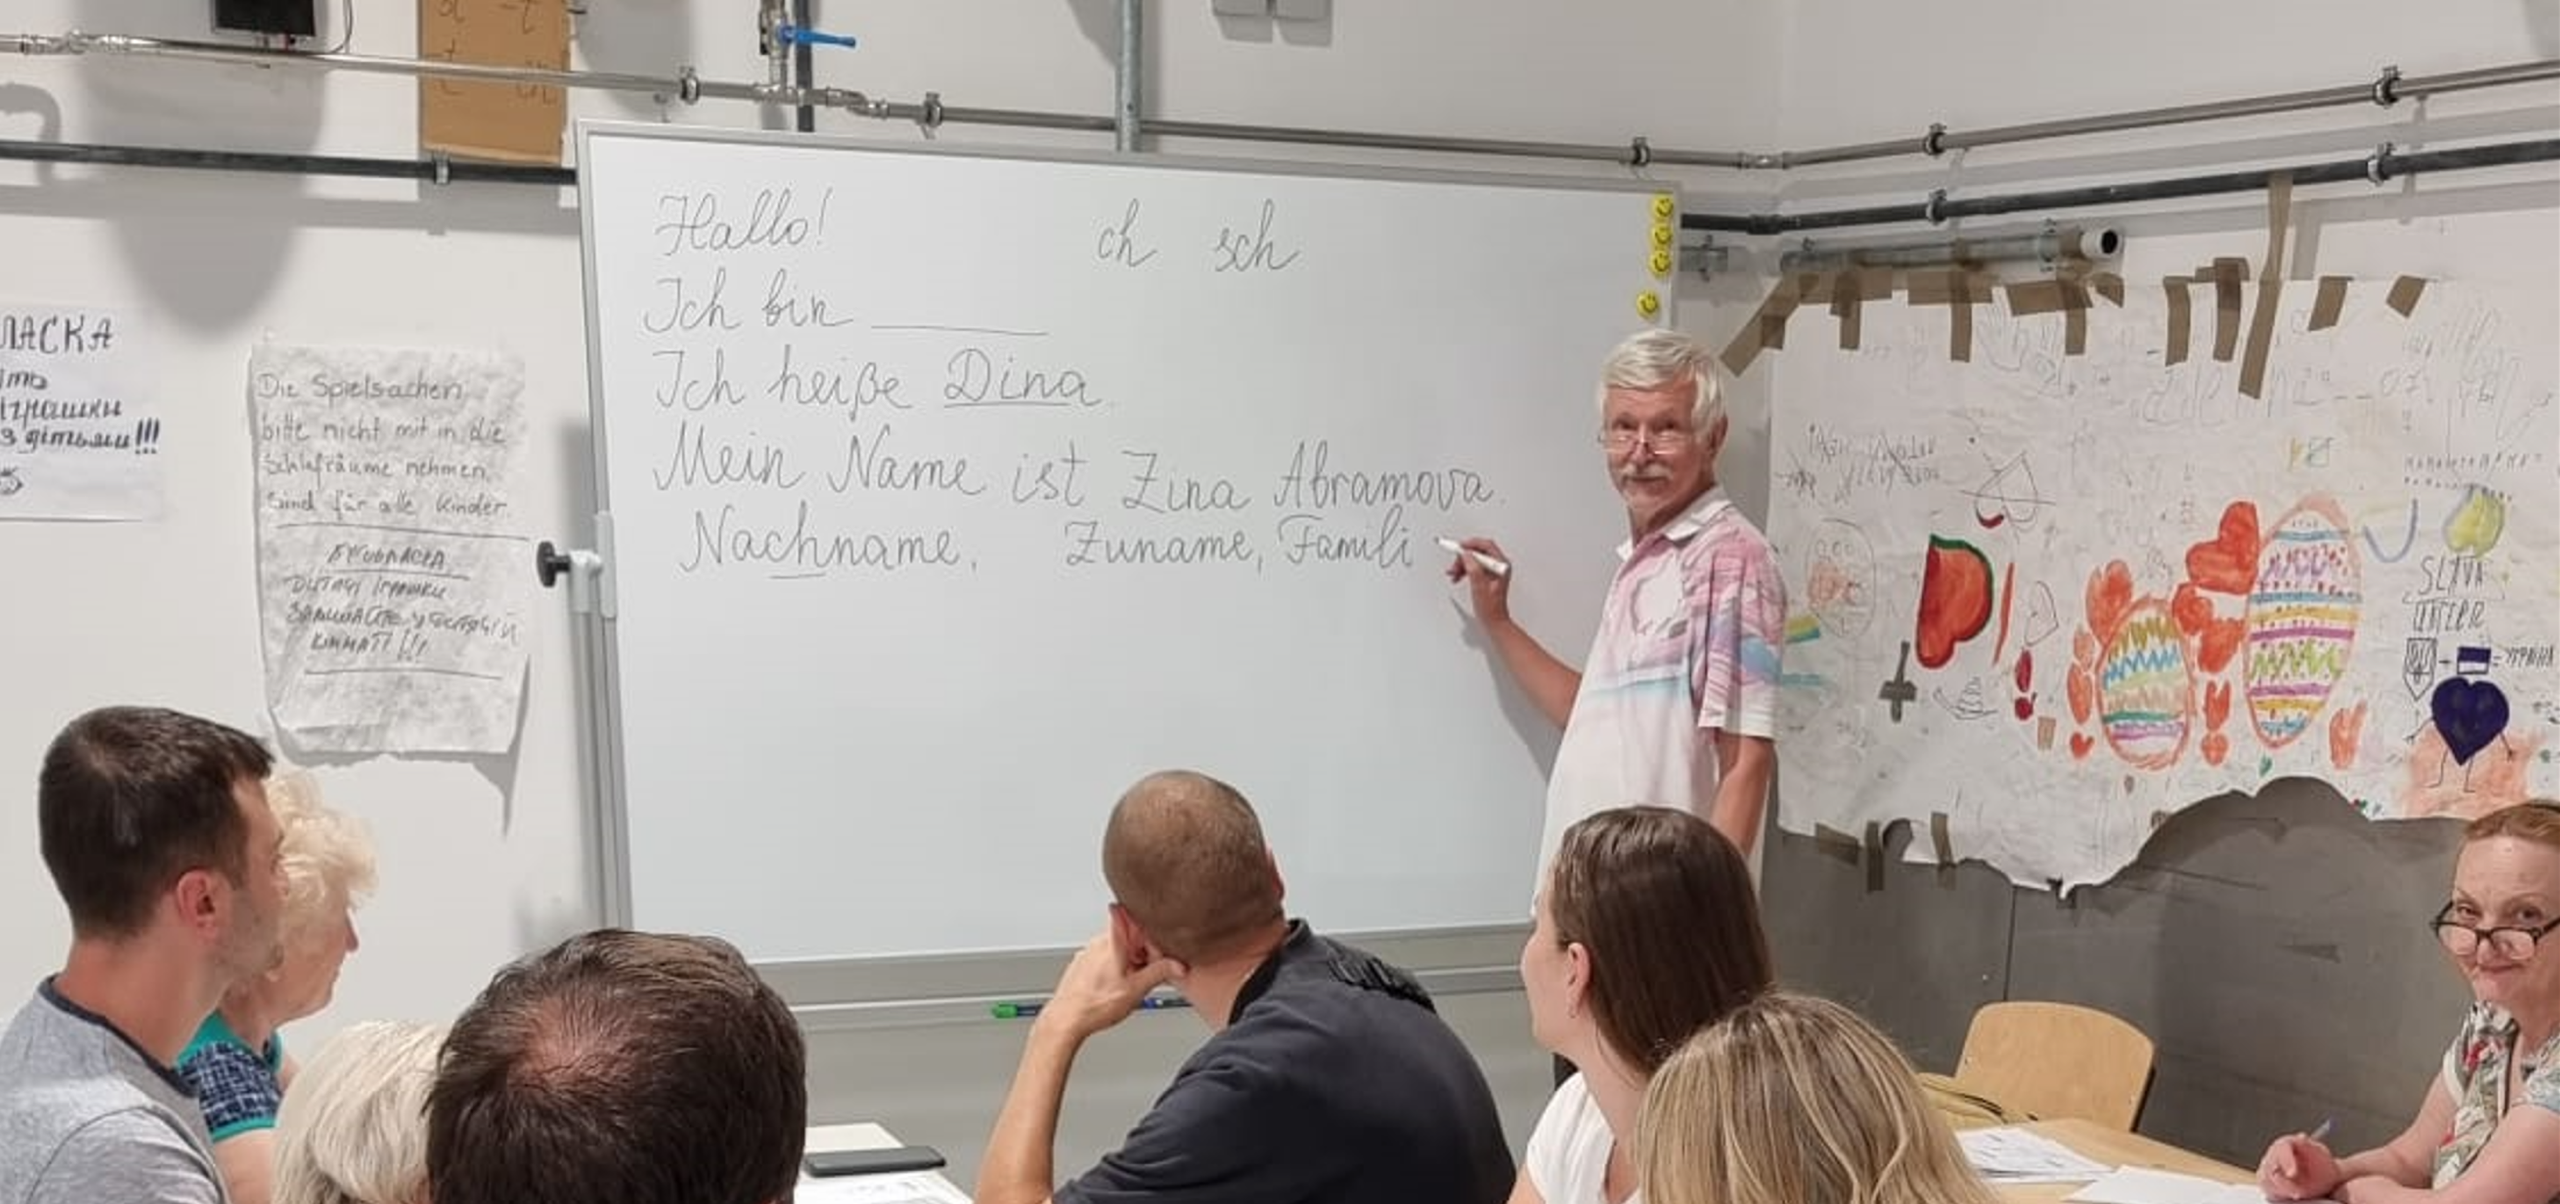 Hallo!
ch sch
Ich bin ______
Ich heiße Dina.
Mein Name ist Zina Abramova.
Nachname, Zuname, Famili
ЛАСКА
іграшки
з дітьми!!!
Die Spielsachen
bitte nicht mit in die
Schlafräume nehmen.
Sind für alle Kinder.
БУДЬЛАСКА
ДИТЯЧІ ІГРАШКИ
ЗАЛИШАЙТЕ У
КІМНАТІ!!!
SLAVA
= УКРАЇНА